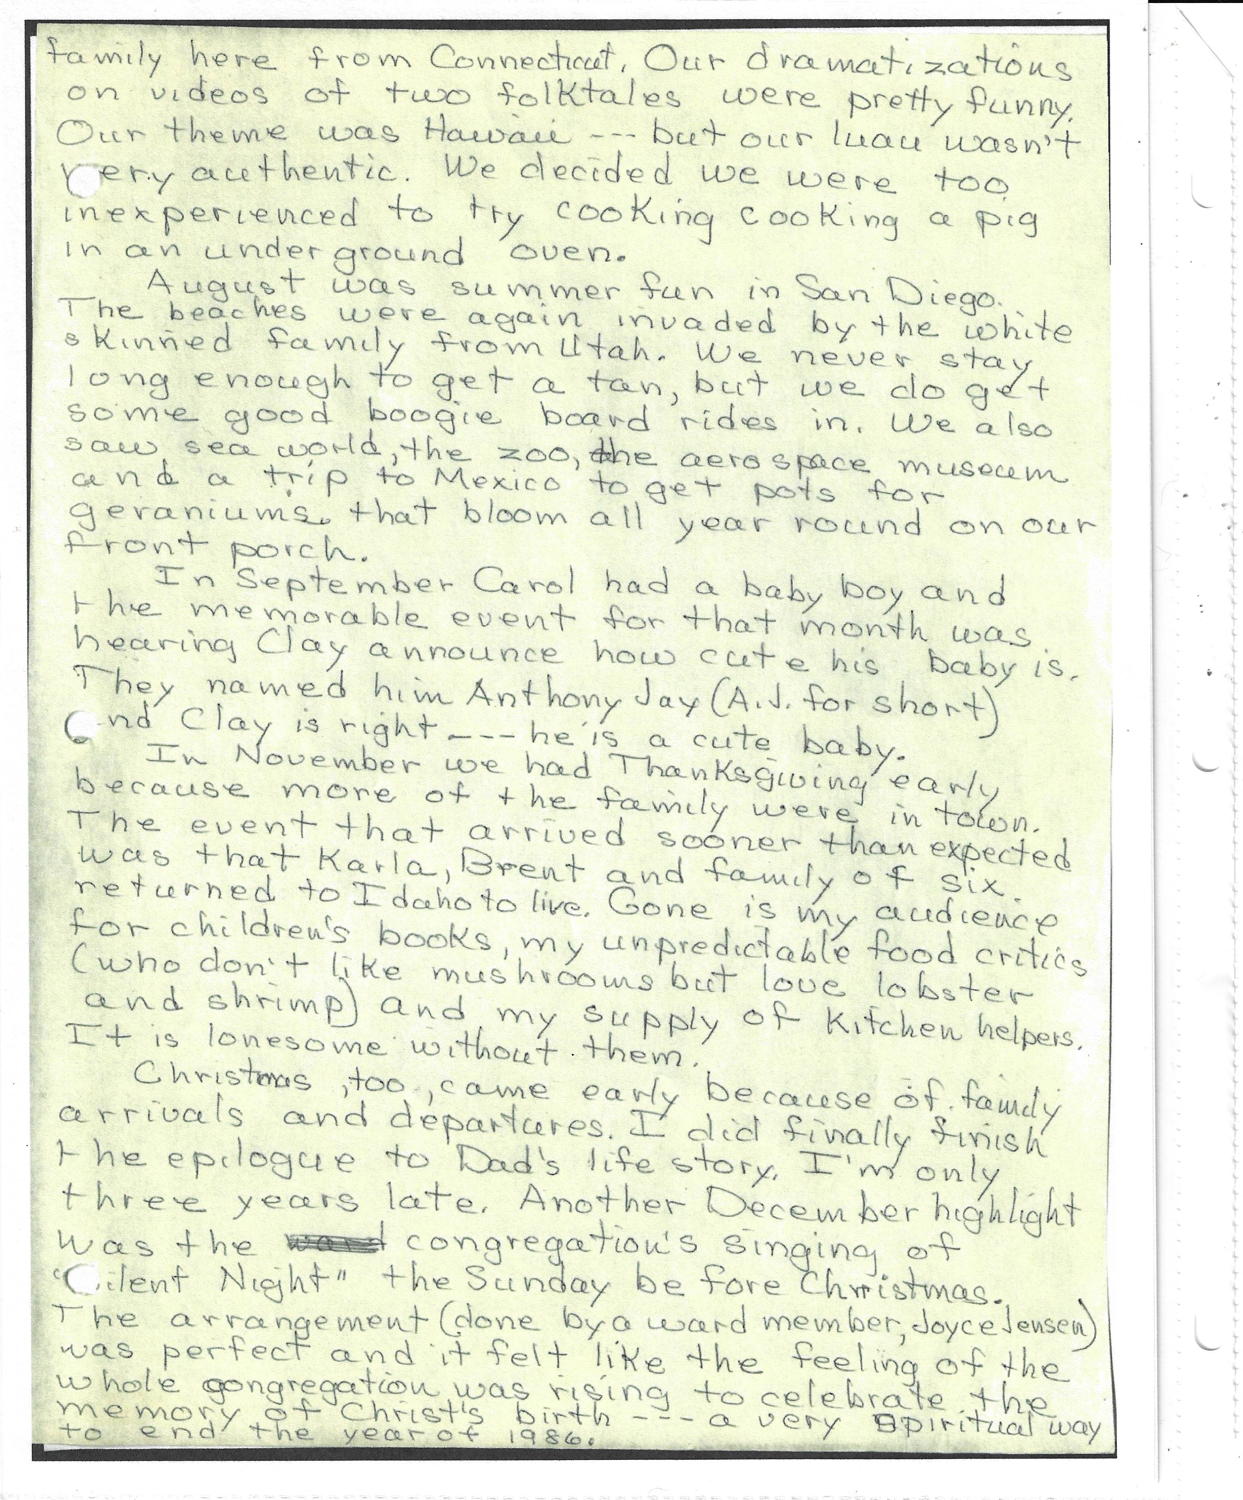 family here from Connecticut. Our dramatizations
on videos of two folktales were pretty funny.
Our theme was Hawaii --- but our luau wasn't
very authentic. We decided we were too
inexperienced to try cooking cooking a pig
in an underground oven.
August was summer fun in San Diego.
The beaches were again invaded by the white
skinned family from Utah. We never stay
long enough to get a tan, but we do get
some good boogie board rides in. We also
saw sea world, the zoo, the aerospace museum
and a trip to Mexico to get pots for
geraniums. that bloom all year round on our
front porch.
In September Carol had a baby boy and
the memorable event for that month was
hearing Clay announce how cute his baby is.
They named him Anthony Jay (A.J. for short)
and Clay is right --- he is a cute baby.
In November we had Thanksgiving early
because more of the family were in town.
The event that arrived sooner than expected
was that Karla, Brent and family of six
returned to Idaho to live. Gone is my audience
for children's books, my unpredictable food critics
(who don't like mushrooms but love lobster
and shrimp) and my supply of kitchen helpers.
It is lonesome without them.
Christmas, too, came early because of family
arrivals and departures. I did finally finish
the epilogue to Dad's life story. I'm only
three years late. Another December highlight
was the ward congregation's singing of
"Silent Night" the Sunday before Christmas.
The arrangement (done by a ward member, Joyce Jensen)
was perfect and it felt like the feeling of the
whole congregation was rising to celebrate the
memory of Christ's birth --- a very spiritual way
to end the year of 1986.